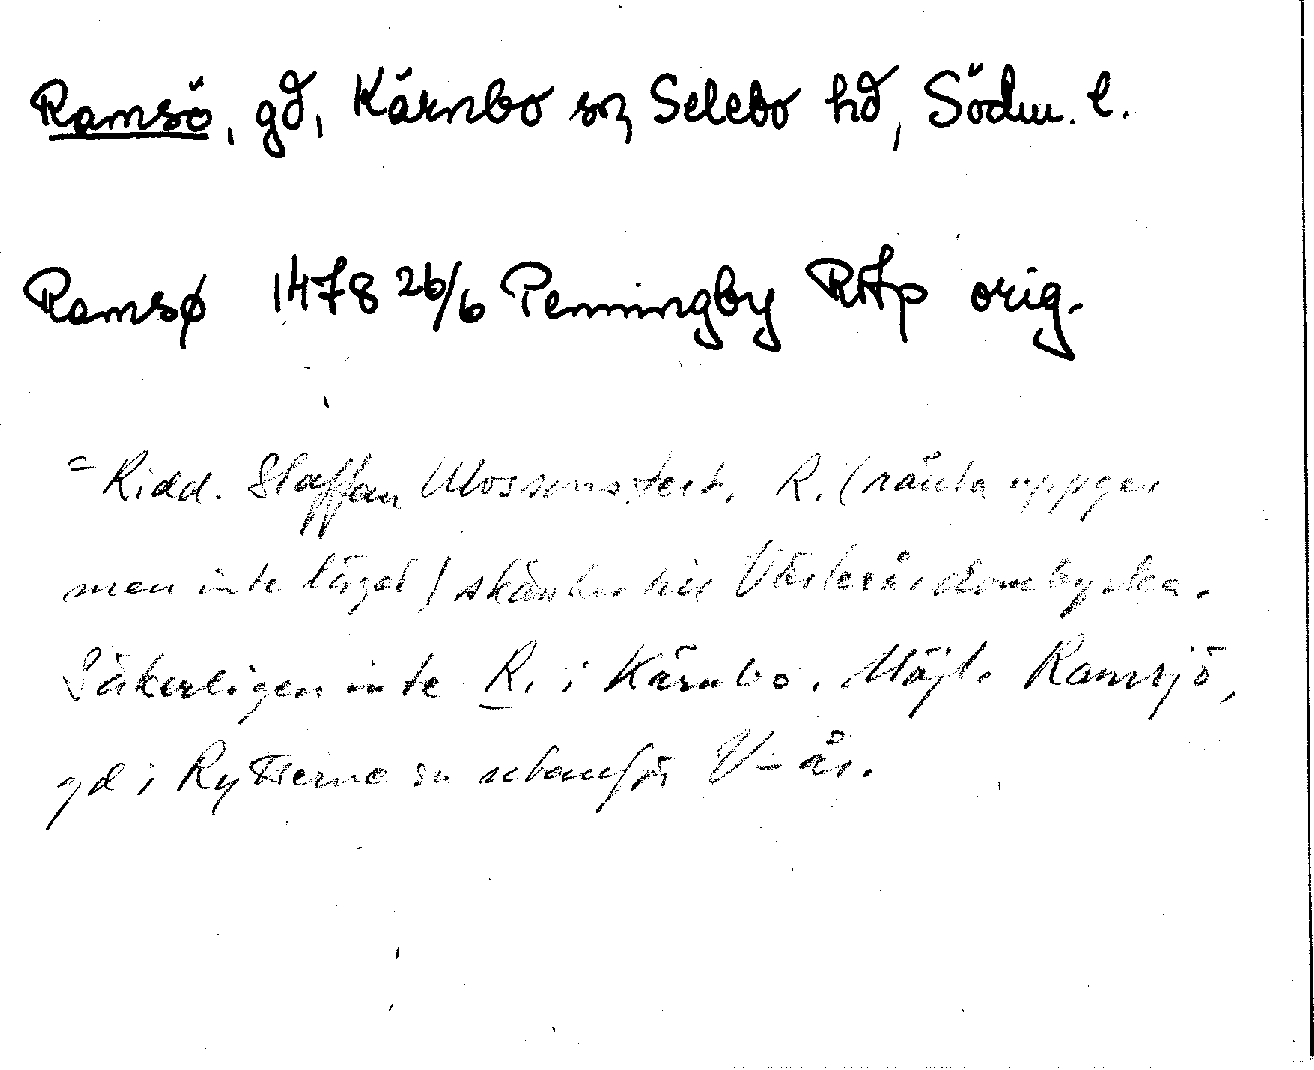 Ramsö, gd, Kärnbo sn, Selebo hd, Södm. l.
Ramsø 1478 26/6 Penningby RAp orig.
= Ridd. Staffan Ulfssons test. R. (ränta uppges
men inte läget) skänkes till Västerås domkyrka.
Säkerligen inte R. i Kärnbo. Möjl. Ramsjö,
gd i Rytterne sn utanför V-ås.